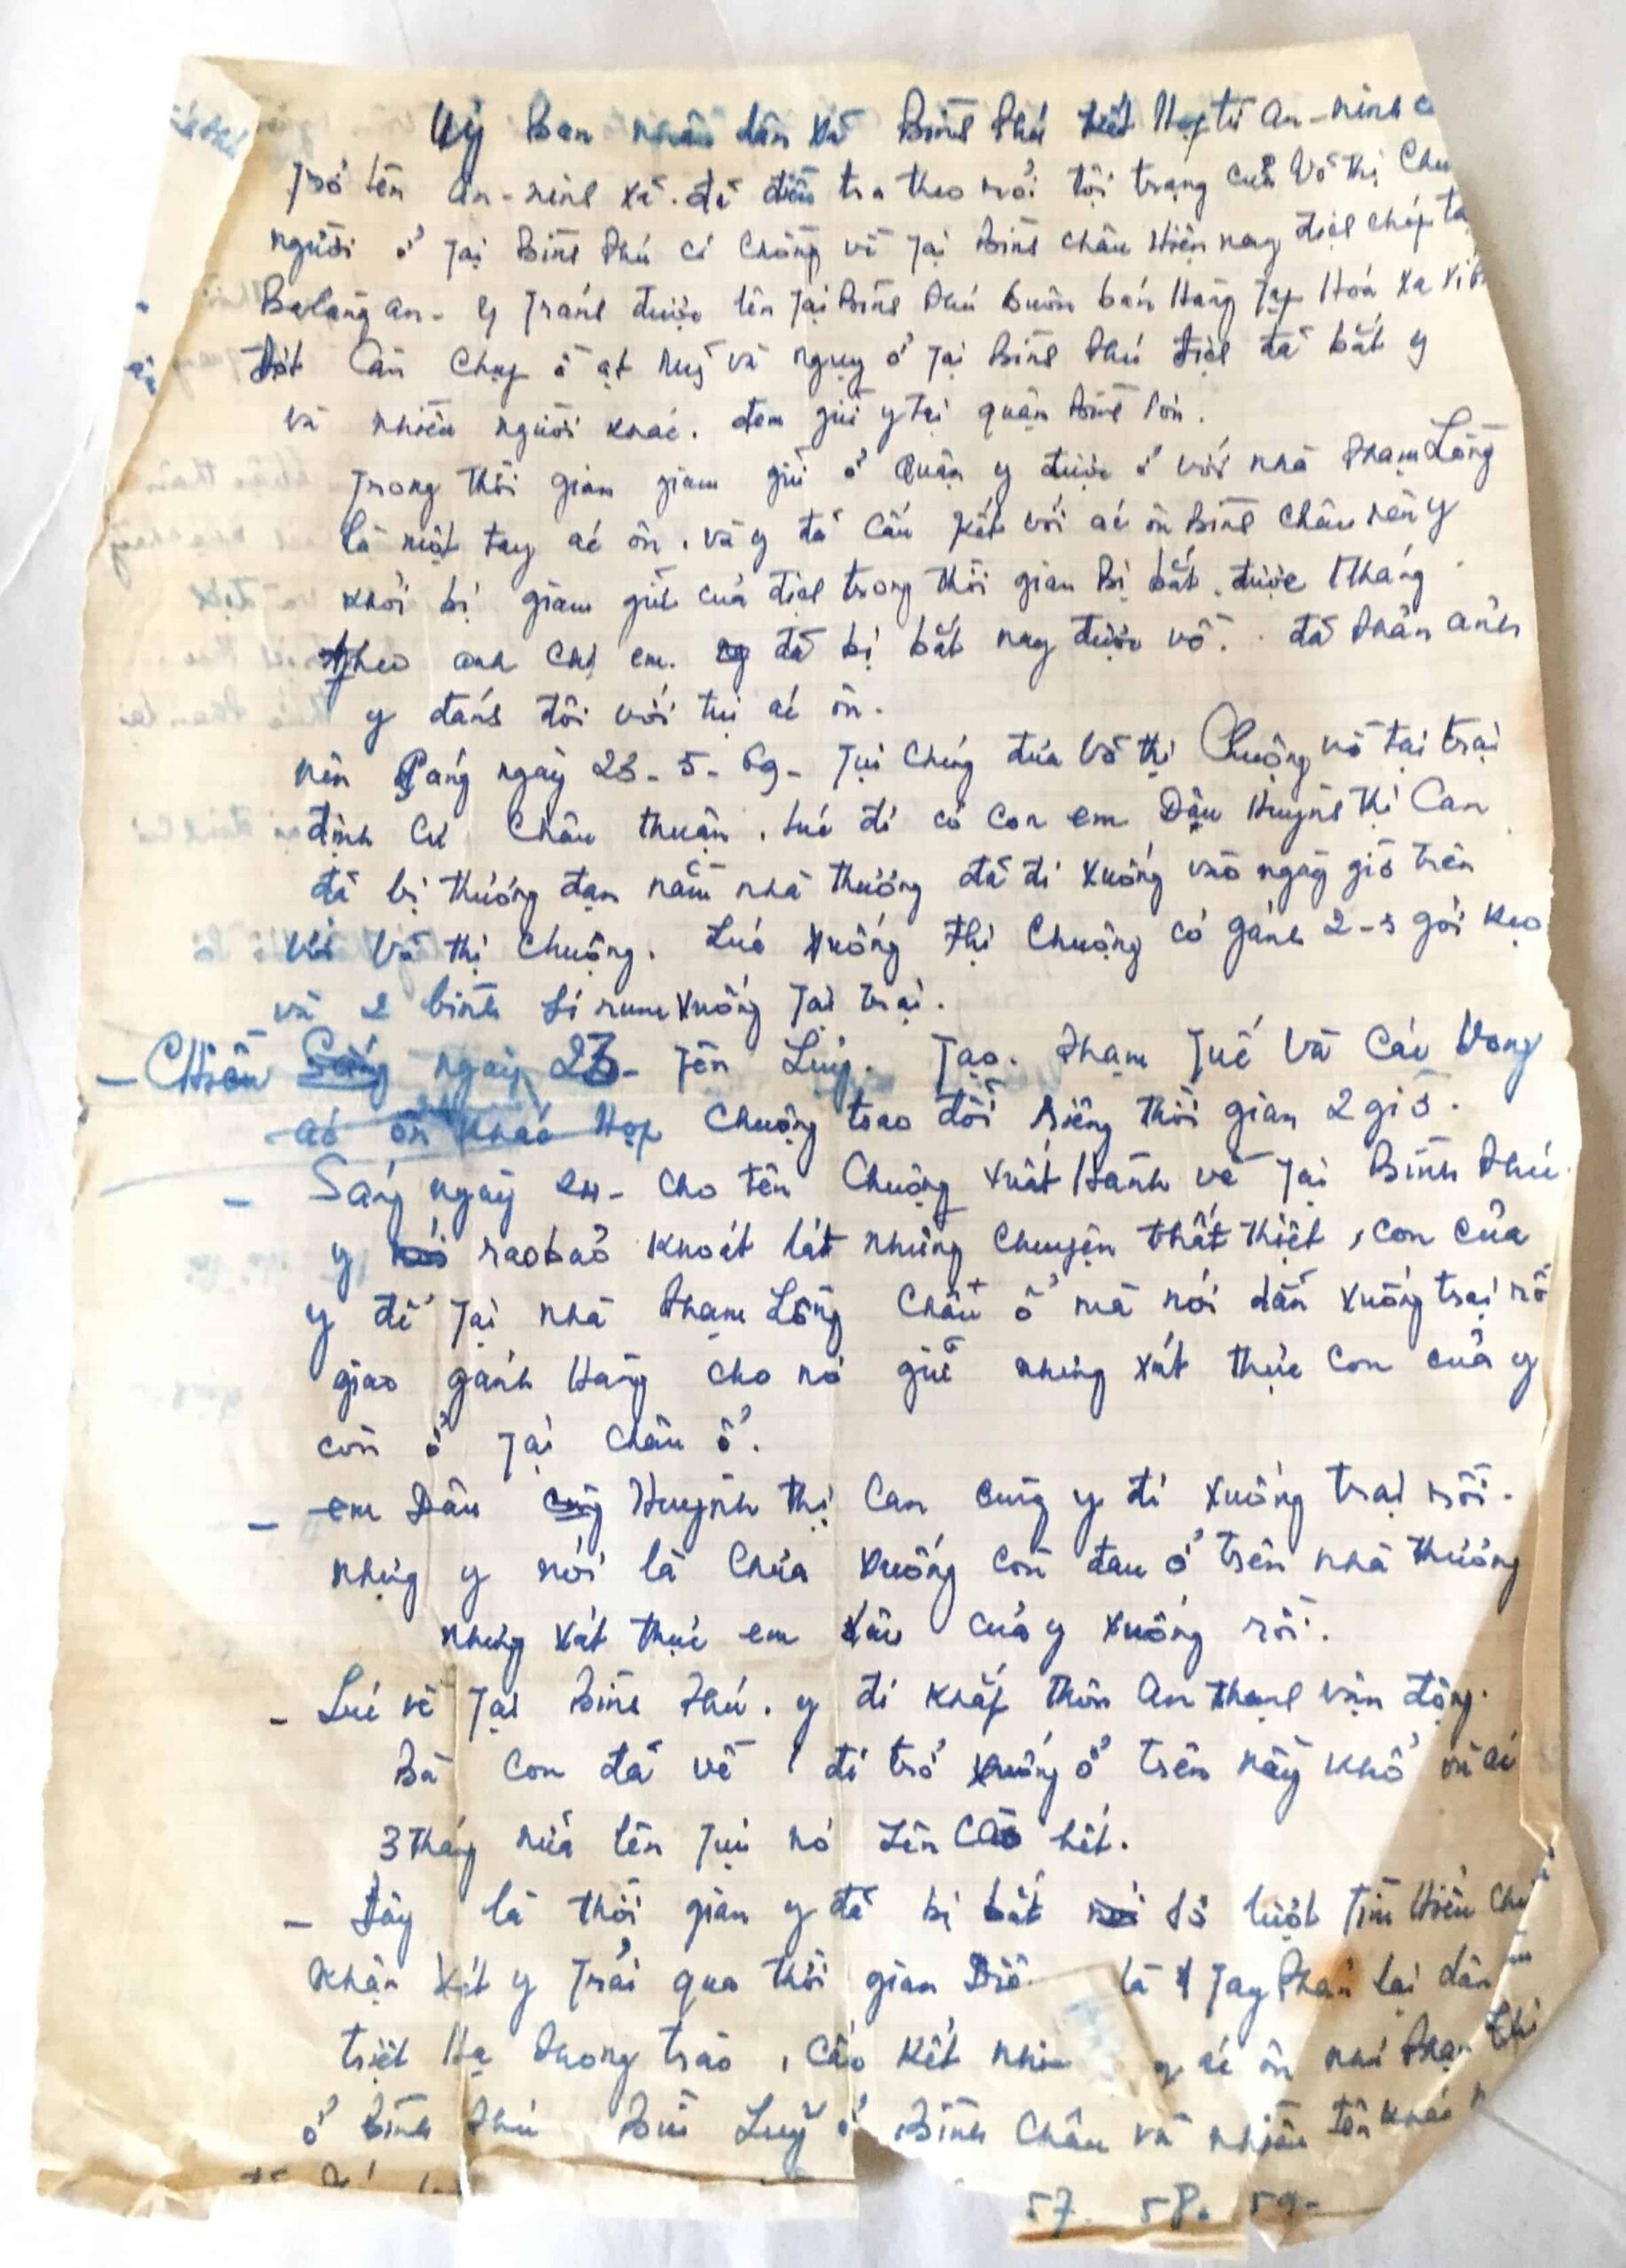 Uỷ Ban nhân dân Xã Bình Phú kết Hợp tổ An-ninh
trở lên An-ninh xã. đã điều tra theo rỏi tội trạng của Võ Thị
người ở Tại Bình Phú có Chồng về Tại Bình châu Hiện nay địch chiếp
Balàngan- y Tránh được lên Tại Bình Phú buôn bán Hàng Tạp Hoá
Đợt Càn Chạp ồ ạt Mỹ và ngụy ở Tại Bình Phú địch đã bắt y
và nhiều người khác. đem giữ y tại quận Bình Sơn.
Trong thời gian giam giữ ở Quận y được ở với nhà Phạm Lồng
là một tay ác ôn. và y đã Cấu Kết với ác ôn Bình Châu nên y
khỏi bị giam giữ của địch trong thời gian Bị bắt. được 1 tháng
theo anh chị em. đã bị bắt nay được về. đã Phản ảnh
y đánh đôi với tụi ác ôn.
nên Sáng ngày 23-5-69- Tụi Chúng đưa Võ thị Chuộng về tại trại
định Cư Châu thuận. Lúc đi có con em Dâu Huỳnh Thị Can
đã bị thương đạn nằm nhà thương đã đi xuống vào ngày giờ trên
với Võ thị Chuộng. Lúc xuống Thị Chuộng có gánh 2-3 gói kẹo
và 2 bình Si rum xuống Tại trại.
- Chiều Sáng ngày 23- Tên Luỹ. Tạo. Phạm Tuế Và Các Vong
ác ôn khác Họp Chuộng trao đổi Riêng thời gian 2 giờ.
- Sáng ngày 24- cho tên Chuộng xuất Hành về Tại Bình Phú
y raobaỏ khoát lát những Chuyện thất thiệt, con của
y để Tại nhà Phạm Lồng Châu ổ mà nói dẩn xuống trại rồi
giao gánh Hàng cho nó giữ nhưng xát thực Con của y
còn ở Tại Châu ổ.
- em Dâu cũng Huỳnh thị Can cùng y đi xuống trại rồi.
nhưng y nói là Chưa xuống còn đau ở trên nhà thương
nhưng xát thực em dâu của y xuống rồi.
- Lúc về Tại Bình Phú. y đi khắp thôn An Thạnh vận động.
Bà con đã về đi trở xuống ở trên này khổ
3 tháng nửa lên Tụi nó Lên Cào hết.
- Đây là thời gian y đã bị bắt lượt Tìm Hiểu
Nhận xét y Trải qua thời gian là 1 Tay Phản lại dân
triệt Hạ Phong trào, Cấo Kết ác ôn như Phạm
ở Bình Phú Bùi Luỹ ở Bình Châu và nhiều tên khác
57. 58. 59-